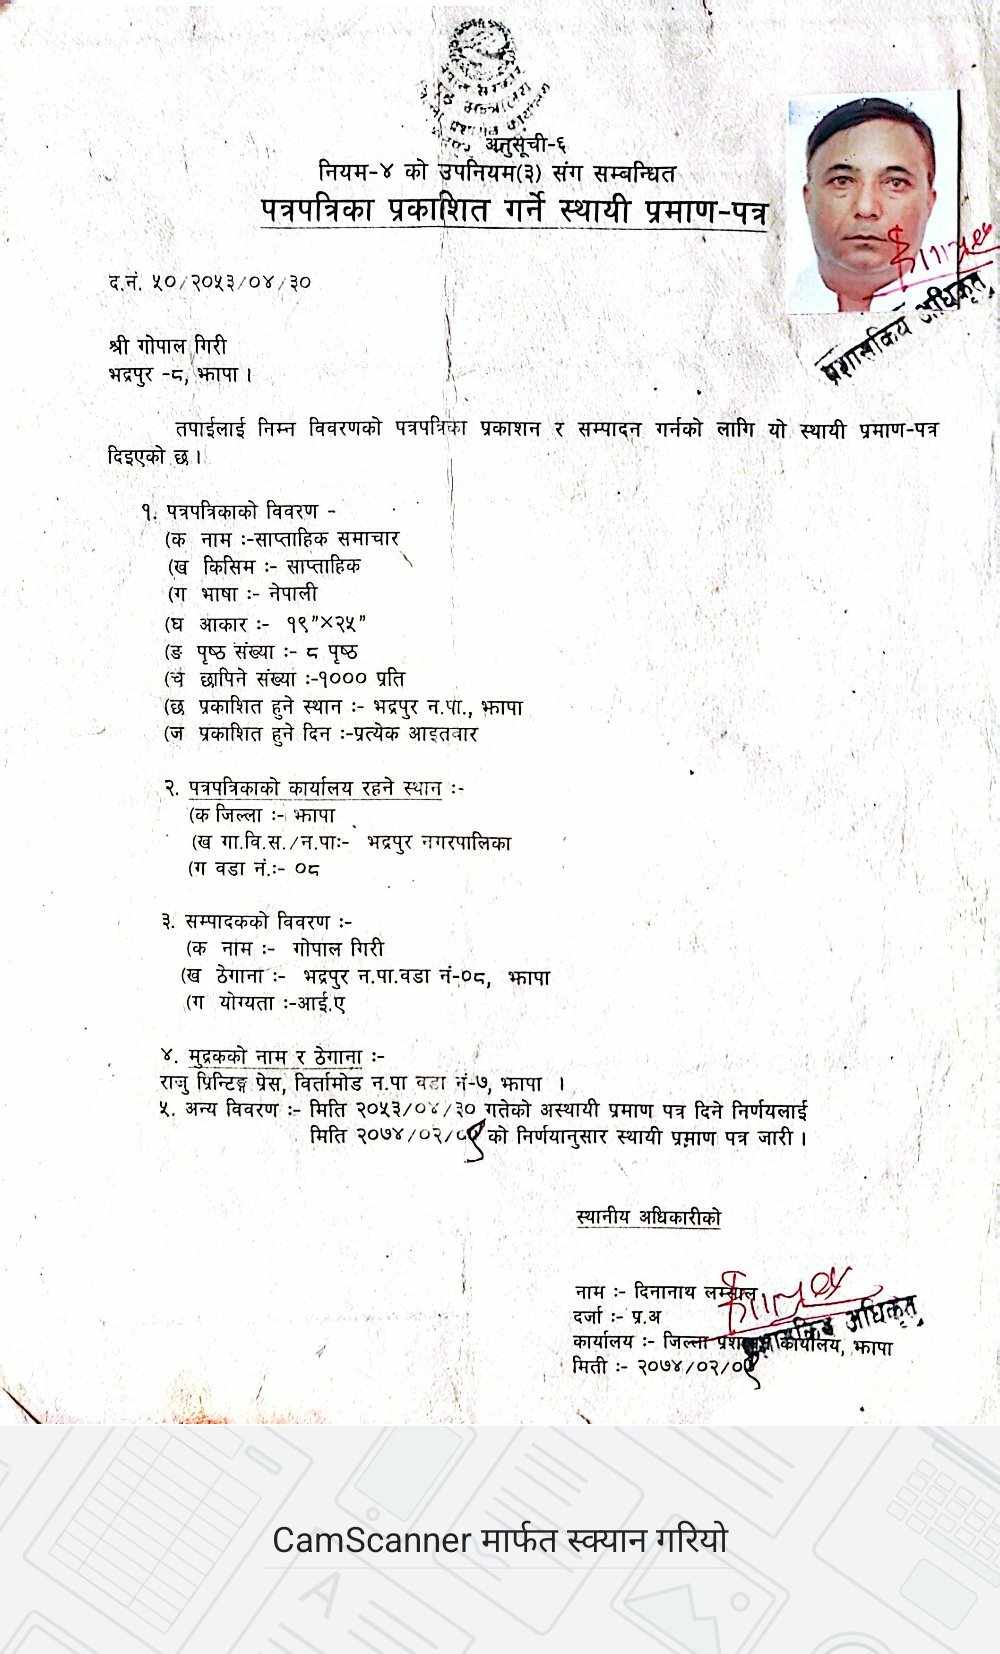 अनुसूची-६
नियम-४ को उपनियम(३) संग सम्बन्धित
पत्रपत्रिका प्रकाशित गर्ने स्थायी प्रमाण-पत्र
प्रशासकिय अधिकृत
द.नं. ५०/२०५३/०४/३०
श्री गोपाल गिरी
भद्रपुर -८, झापा ।
तपाईलाई निम्न विवरणको पत्रपत्रिका प्रकाशन र सम्पादन गर्नको लागि यो स्थायी प्रमाण-पत्र
दिइएको छ ।
१. पत्रपत्रिकाको विवरण -
(क नाम :-साप्ताहिक समाचार
(ख किसिम :- साप्ताहिक
(ग भाषा :- नेपाली
(घ आकार :- १९”×२५”
(ङ पृष्ठ संख्या :- ८ पृष्ठ
(च छापिने संख्या :-१००० प्रति
(छ प्रकाशित हुने स्थान :- भद्रपुर न.पा., झापा
(ज प्रकाशित हुने दिन :-प्रत्येक आइतवार
२. पत्रपत्रिकाको कार्यालय रहने स्थान :-
(क जिल्ला :- झापा
(ख गा.वि.स./न.पा:- भद्रपुर नगरपालिका
(ग वडा नं.:- ०८
३. सम्पादकको विवरण :-
(क नाम :- गोपाल गिरी
(ख ठेगाना :- भद्रपुर न.पा.वडा नं-०८, झापा
(ग योग्यता :-आई.ए
४. मुद्रकको नाम र ठेगाना :-
राजु प्रिन्टिङ्ग प्रेस, विर्तामोड न.पा वडा नं-७, झापा ।
५. अन्य विवरण :- मिति २०५३/०४/३० गतेको अस्थायी प्रमाण पत्र दिने निर्णयलाई
मिति २०७४/०२/०९ को निर्णयानुसार स्थायी प्रमाण पत्र जारी ।
स्थानीय अधिकारीको
नाम :- दिनानाथ लम्साल
दर्जा :- प्र.अ
प्रशासकिय अधिकृत
कार्यालय :- जिल्ला प्रशासन कार्यालय, झापा
मिती :- २०७४/०२/०९
CamScanner मार्फत स्क्यान गरियो